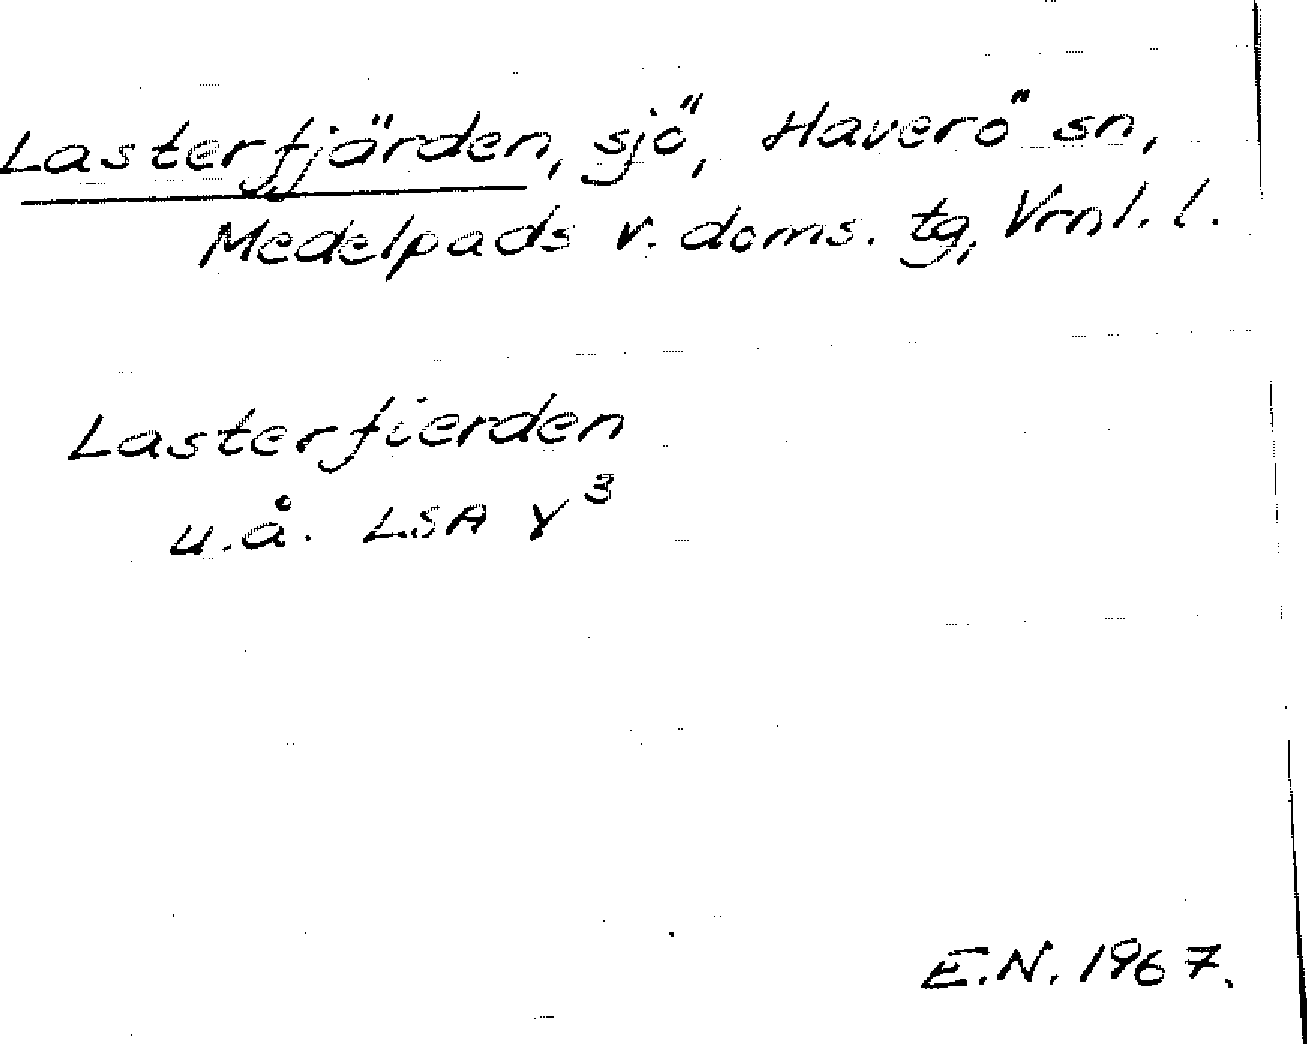 Lasterfjärden, sjö, Haverö sn,
Medelpads v. doms. tg, Vrnl. l.
Lasterfierden
u.å. LSA γ³
E.N. 1967.